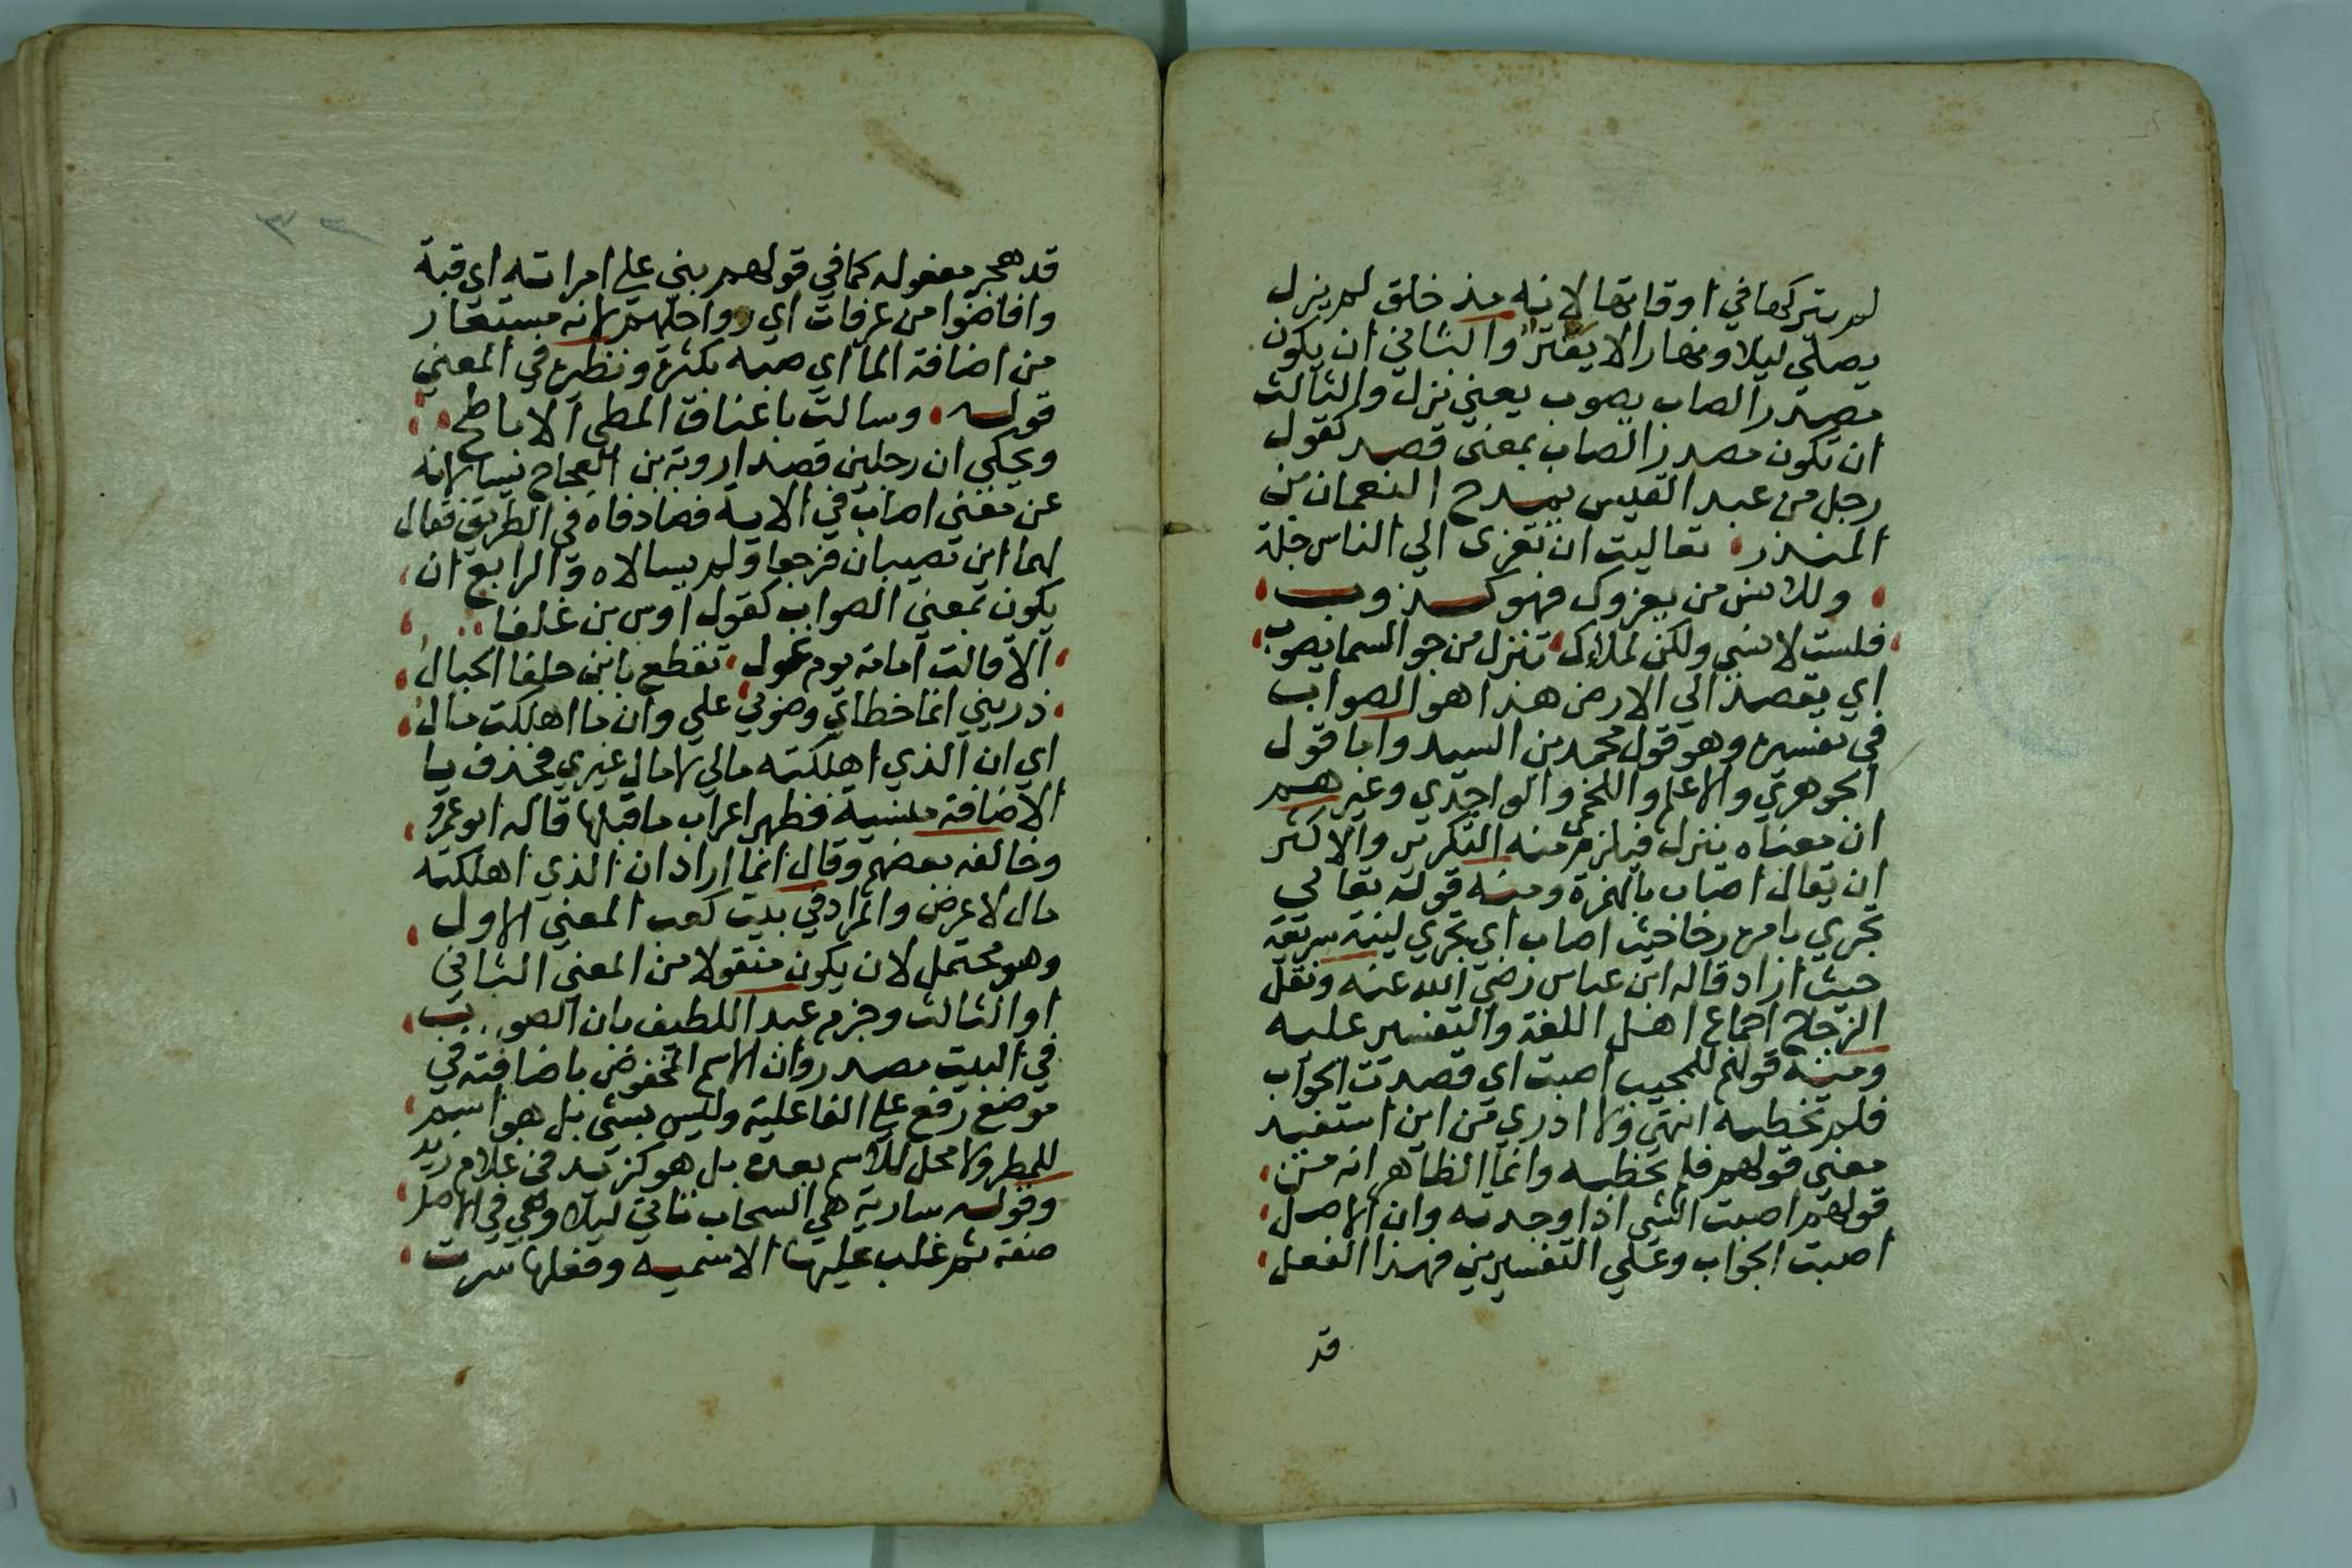 لم يتركها في اوقاتها لانه مذ خلق لم يزل
يصلي ليلا ونهارا لا يفتر والثاني ان يكون
مصدرا لصاب يصوب يعني نزل والثالث
ان تكون مصدرا لصاب بمعنى قصد كقول
رجل من عبد القيس يمدح النعمان بن
المنذر تعاليت ان تعزى الي الناس جلة
وللانس من يعزوك فهو كذوب
فلست لانسي ولكن لملاك تنزل من جو السما يصوب
اي يقصد الي الارض هذا هو الصواب
في تفسيره وهو قول محمد بن السيد واما قول
الجوهري والاعلم واللخمي والواحدي وغيرهم
ان معناه ينزل فيلزم منه التكرير والاكثر
ان يقال اصاب بالهمزة ومنه قوله تعالي
تجري بامره رخا حيث اصاب اي تجري لينة سريعة
حيث اراد قاله ابن عباس رضي الله عنه ونقل
الزجاج اجماع اهل اللغة والتفسير عليه
ومنه قولهم للمجيب اصبت اي قصدت الجواب
فلم تخطيه انتهى ولا ادري من اين استفيد
معني قولهم فلم تخطيه وانما الظاهر انه من
قولهم اصبت الشي اذا وجدته وان الاصل
اصبت الجواب وعلي التفسيرين فهذا الفعل
قد
٣٢
قد هجر مفعوله كما في قولهم بني علي امراته اي قبة
وافاضوا من عرفات اي رواحلهم لانه مستعار
من اضافة الما اي صبه بكثرة ونظيره في المعني
قوله وسالت باعناق المطي الاباطح
ويحكي ان رجلين قصدا روبة بن العجاج ليسالانه
عن معني اصاب في الاية فصادفاه في الطريق فقال
لهما اين تصيبان فرجعا ولم يسالاه والرابع ان
يكون بمعني الصواب كقول اوس بن غلفا
الا قالت امامة يوم غول تقطع بابن خلفا الحبال
ذريني انما خطاي وصوبي علي وان ما اهلكت مال
اي ان الذي اهلكته مالي لا مال غيري فحذف يا
الاضافة منسية فظهر اعراب ما قبلها قاله ابو عمرو
وخالفه بعضهم وقال انما اراد ان الذي اهلكته
مال لا عرض والمراد في بيت كعب المعني الاول
وهو محتمل لان يكون منقولا من المعني الثاني
او الثالث وجزم عبد اللطيف بان الصوب
في البيت مصدر وان الاسم المخفوض باضافته في
موضع رفع علي الفاعلية وليس بشي بل هو اسم
للمطر ولا محل للاسم بعده بل هو كزيد في غلام زيد
وقوله سارية هي السحاب تاتي ليلا وهي في الاصل
صفة ثم غلب عليها الاسميه وفعلها سرت